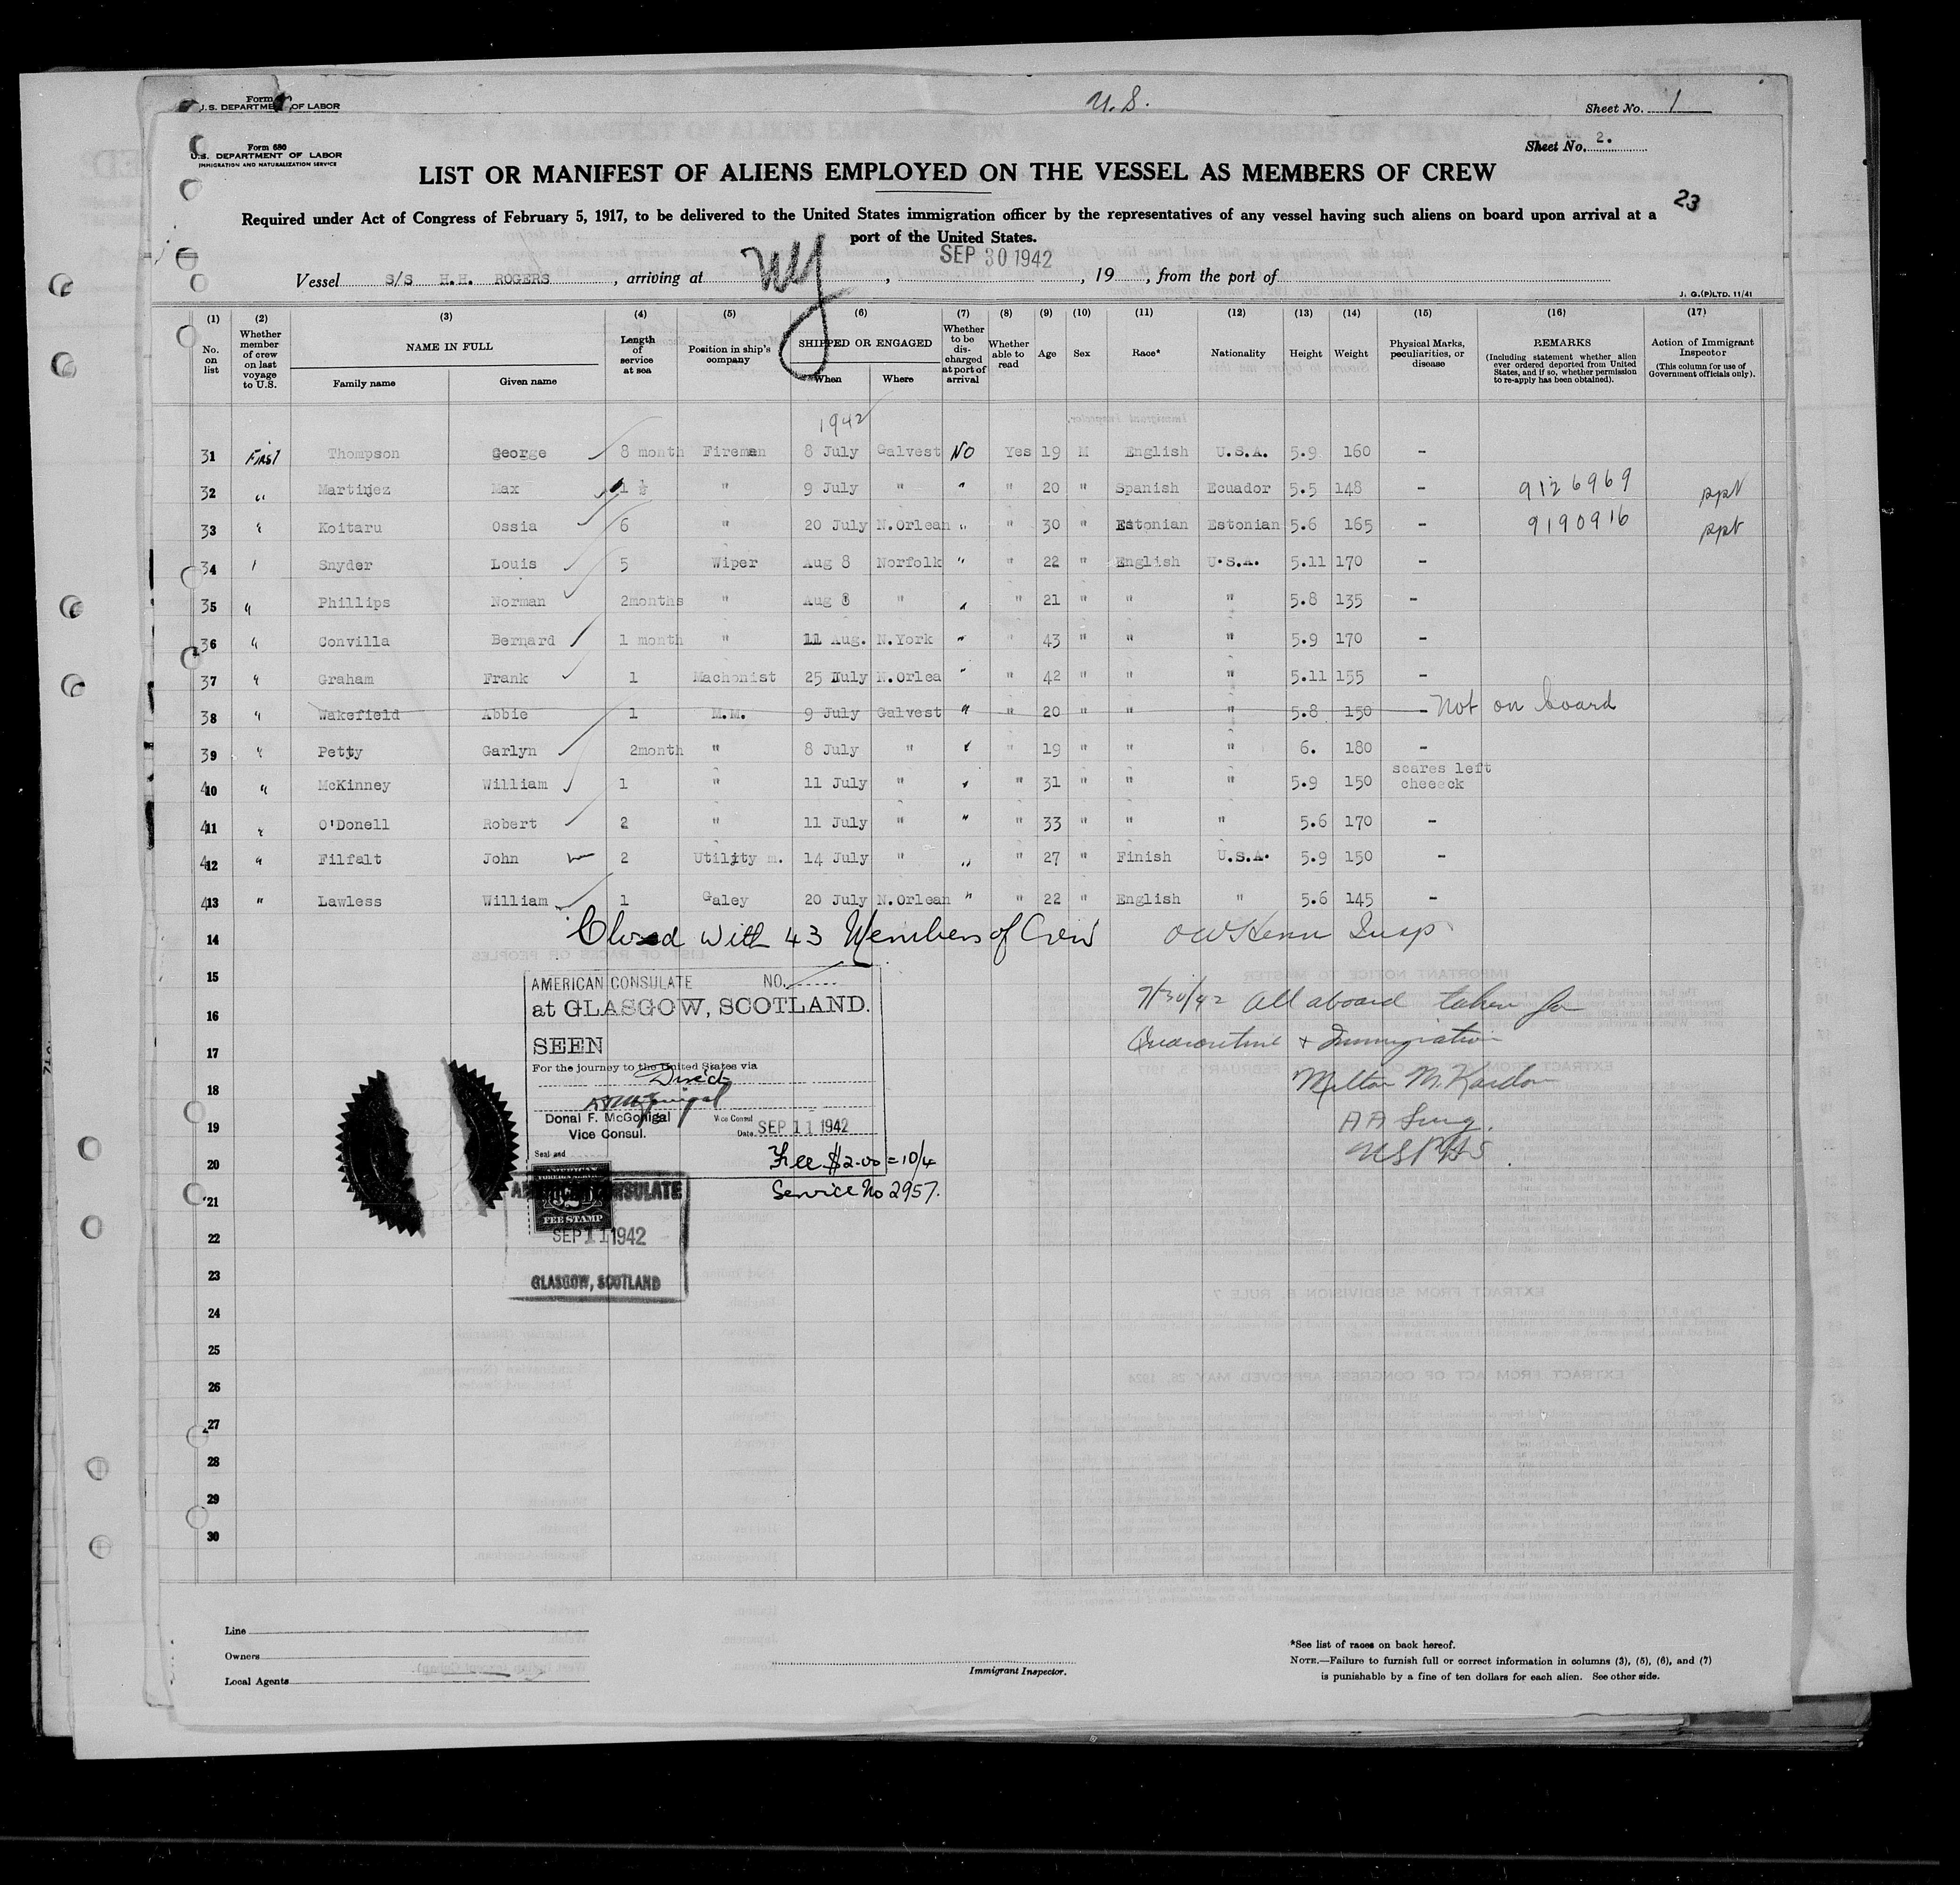 Form
U.S. DEPARTMENT OF LABOR
U.S.
Sheet No. 1
Form 680
U.S. DEPARTMENT OF LABOR
IMMIGRATION AND NATURALIZATION SERVICE
Sheet No. 2.
LIST OR MANIFEST OF ALIENS EMPLOYED ON THE VESSEL AS MEMBERS OF CREW
23
Required under Act of Congress of February 5, 1917, to be delivered to the United States immigration officer by the representatives of any vessel having such aliens on board upon arrival at a
port of the United States.
Vessel S/S H.H. ROGERS, arriving at NY, SEP 30 1942, 19, from the port of
J. G.(P)LTD. 11/41
(1) (2) (3) (4) (5) (6) (7) (8) (9) (10) (11) (12) (13) (14) (15) (16) (17)
No. on list
Whether member of crew on last voyage to U.S.
NAME IN FULL
Family name Given name
Length of service at sea
Position in ship's company
SHIPPED OR ENGAGED
When Where
Whether to be discharged at port of arrival
Whether able to read
Age
Sex
Race*
Nationality
Height
Weight
Physical Marks, peculiarities, or disease
REMARKS
(Including statement whether alien ever ordered deported from United States, and if so, whether permission to re-apply has been obtained).
Action of Immigrant Inspector
(This column for use of Government officials only).
1942
31 First Thompson George 8 month Fireman 8 July Galvest No Yes 19 M English U.S.A. 5.9 160 -
32 " Martinez Max 1 ½ " 9 July " " " 20 " Spanish Ecuador 5.5 148 - 9126969 ppt
33 " Koitaru Ossia 6 " 20 July N.Orlean " " 30 " Estonian Estonian 5.6 165 - 9190916 ppt
34 " Snyder Louis 5 Wiper Aug 8 Norfolk " " 22 " English U.S.A. 5.11 170 -
35 " Phillips Norman 2months " Aug 8 " " " 21 " " " 5.8 135 -
36 " Convilla Bernard 1 month " 11 Aug. N.York " " 43 " " " 5.9 170 -
37 " Graham Frank 1 Machonist 25 July N.Orlea " " 42 " " " 5.11 155 -
38 " Wakefield Abbie 1 M.M. 9 July Galvest " " 20 " " " 5.8 150 - Not on board
39 " Petty Garlyn 2month " 8 July " " " 19 " " " 6. 180 -
40 " McKinney William 1 " 11 July " " " 31 " " " 5.9 150 scares left cheeeck
41 " O'Donell Robert 2 " 11 July " " " 33 " " " 5.6 170 -
42 " Filfalt John 2 Utility m. 14 July " " " 27 " Finish U.S.A. 5.9 150 -
43 " Lawless William 1 Galey 20 July N.Orlean " " 22 " English " 5.6 145 -
Closed with 43 Members of Crew
14
15
16
17
18
19
20
21
22
23
24
25
26
27
28
29
30
9/30/42 All aboard taken for
Quarantine & Immigration
Milton M. Kardon
AA Surg.
USPHS
AMERICAN CONSULATE NO.
at GLASGOW, SCOTLAND.
SEEN
For the journey to the United States via
Direct
Donal F. McGonigal Vice Consul
Vice Consul. Date SEP 11 1942
Seal and
Fee $2.00 = 10/4
Service No 2957.
AMERICAN CONSULATE
FEE STAMP
SEP 11 1942
GLASGOW, SCOTLAND
Line
Owners
Local Agents
Immigrant Inspector.
*See list of races on back hereof.
NOTE.—Failure to furnish full or correct information in columns (3), (5), (6), and (7)
is punishable by a fine of ten dollars for each alien. See other side.